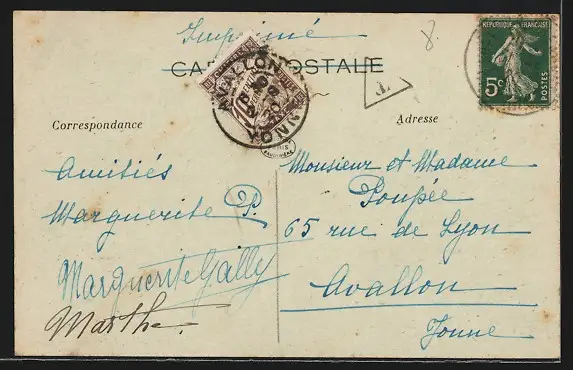 Imprimé
CARTE POSTALE
8
T
REPUBLIQUE FRANÇAISE
5c
POSTES
AVALLON
YONNE
Correspondance
Adresse
Amitiés
Marguerite P.
Marguerite Gally
Marthe
Monsieur et Madame
Poupée
65 rue de Lyon
Avallon
Yonne